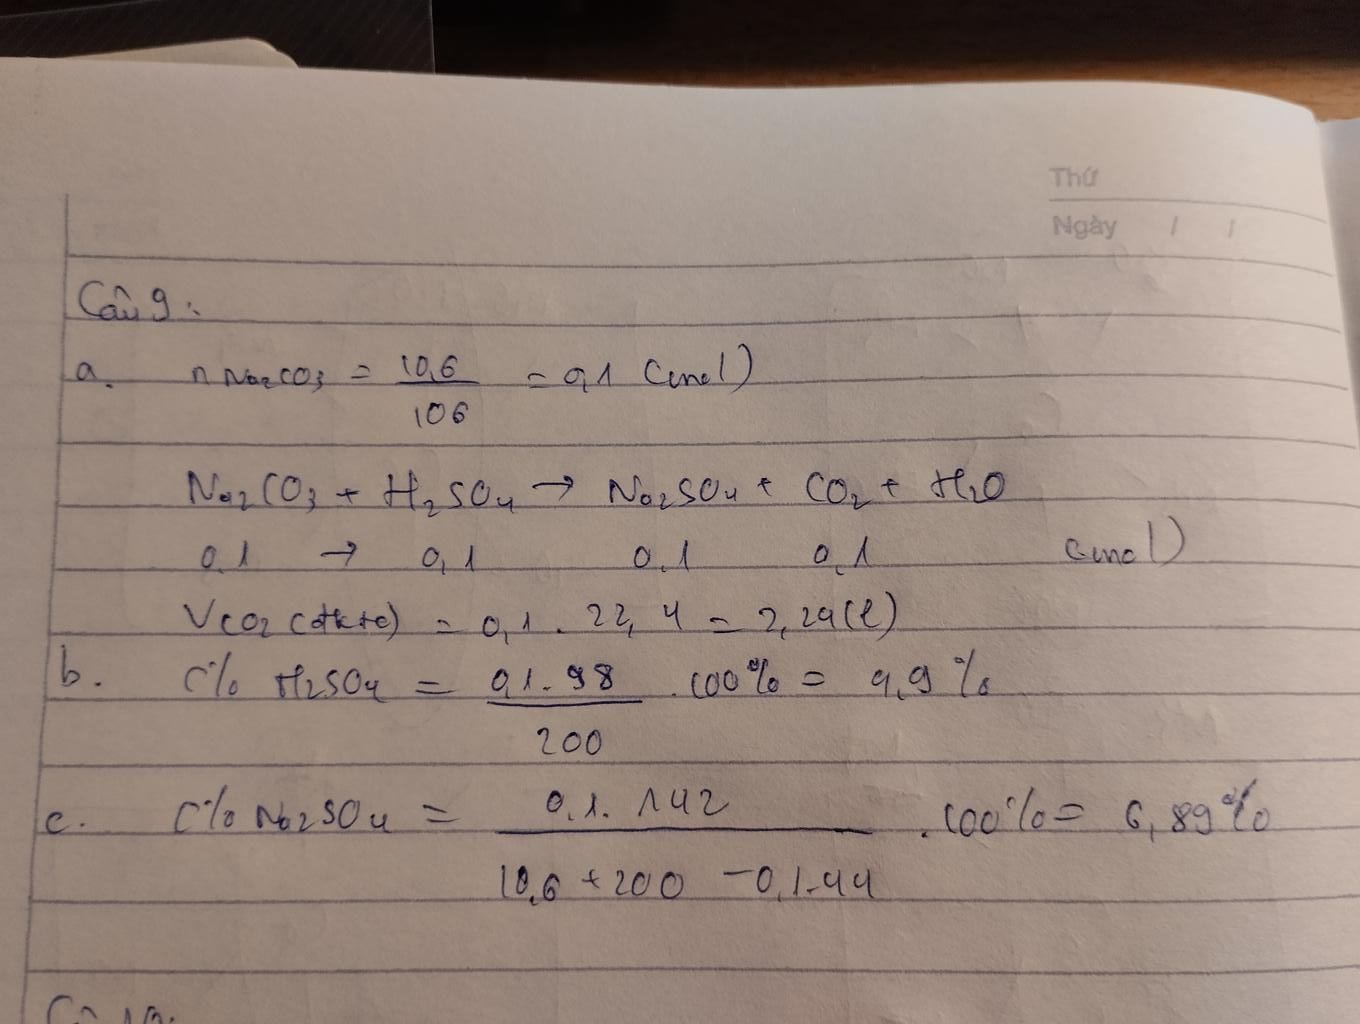 Thứ
Ngày / /
Câu 9:
a. n Na2CO3 = 10,6 / 106 = 0,1 (mol)
Na2CO3 + H2SO4 → Na2SO4 + CO2 + H2O
0,1 → 0,1 0,1 0,1 (mol)
VCO2 (đktc) = 0,1 . 22,4 = 2,24 (l)
b. C% H2SO4 = 0,1 . 98 / 200 . 100% = 4,9%
c. C% Na2SO4 = 0,1 . 142 / 10,6 + 200 - 0,1 . 44 . 100% = 6,89%